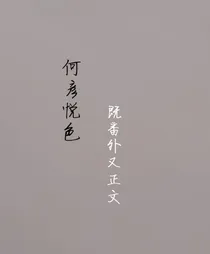 何彦悦色
既番外又正文